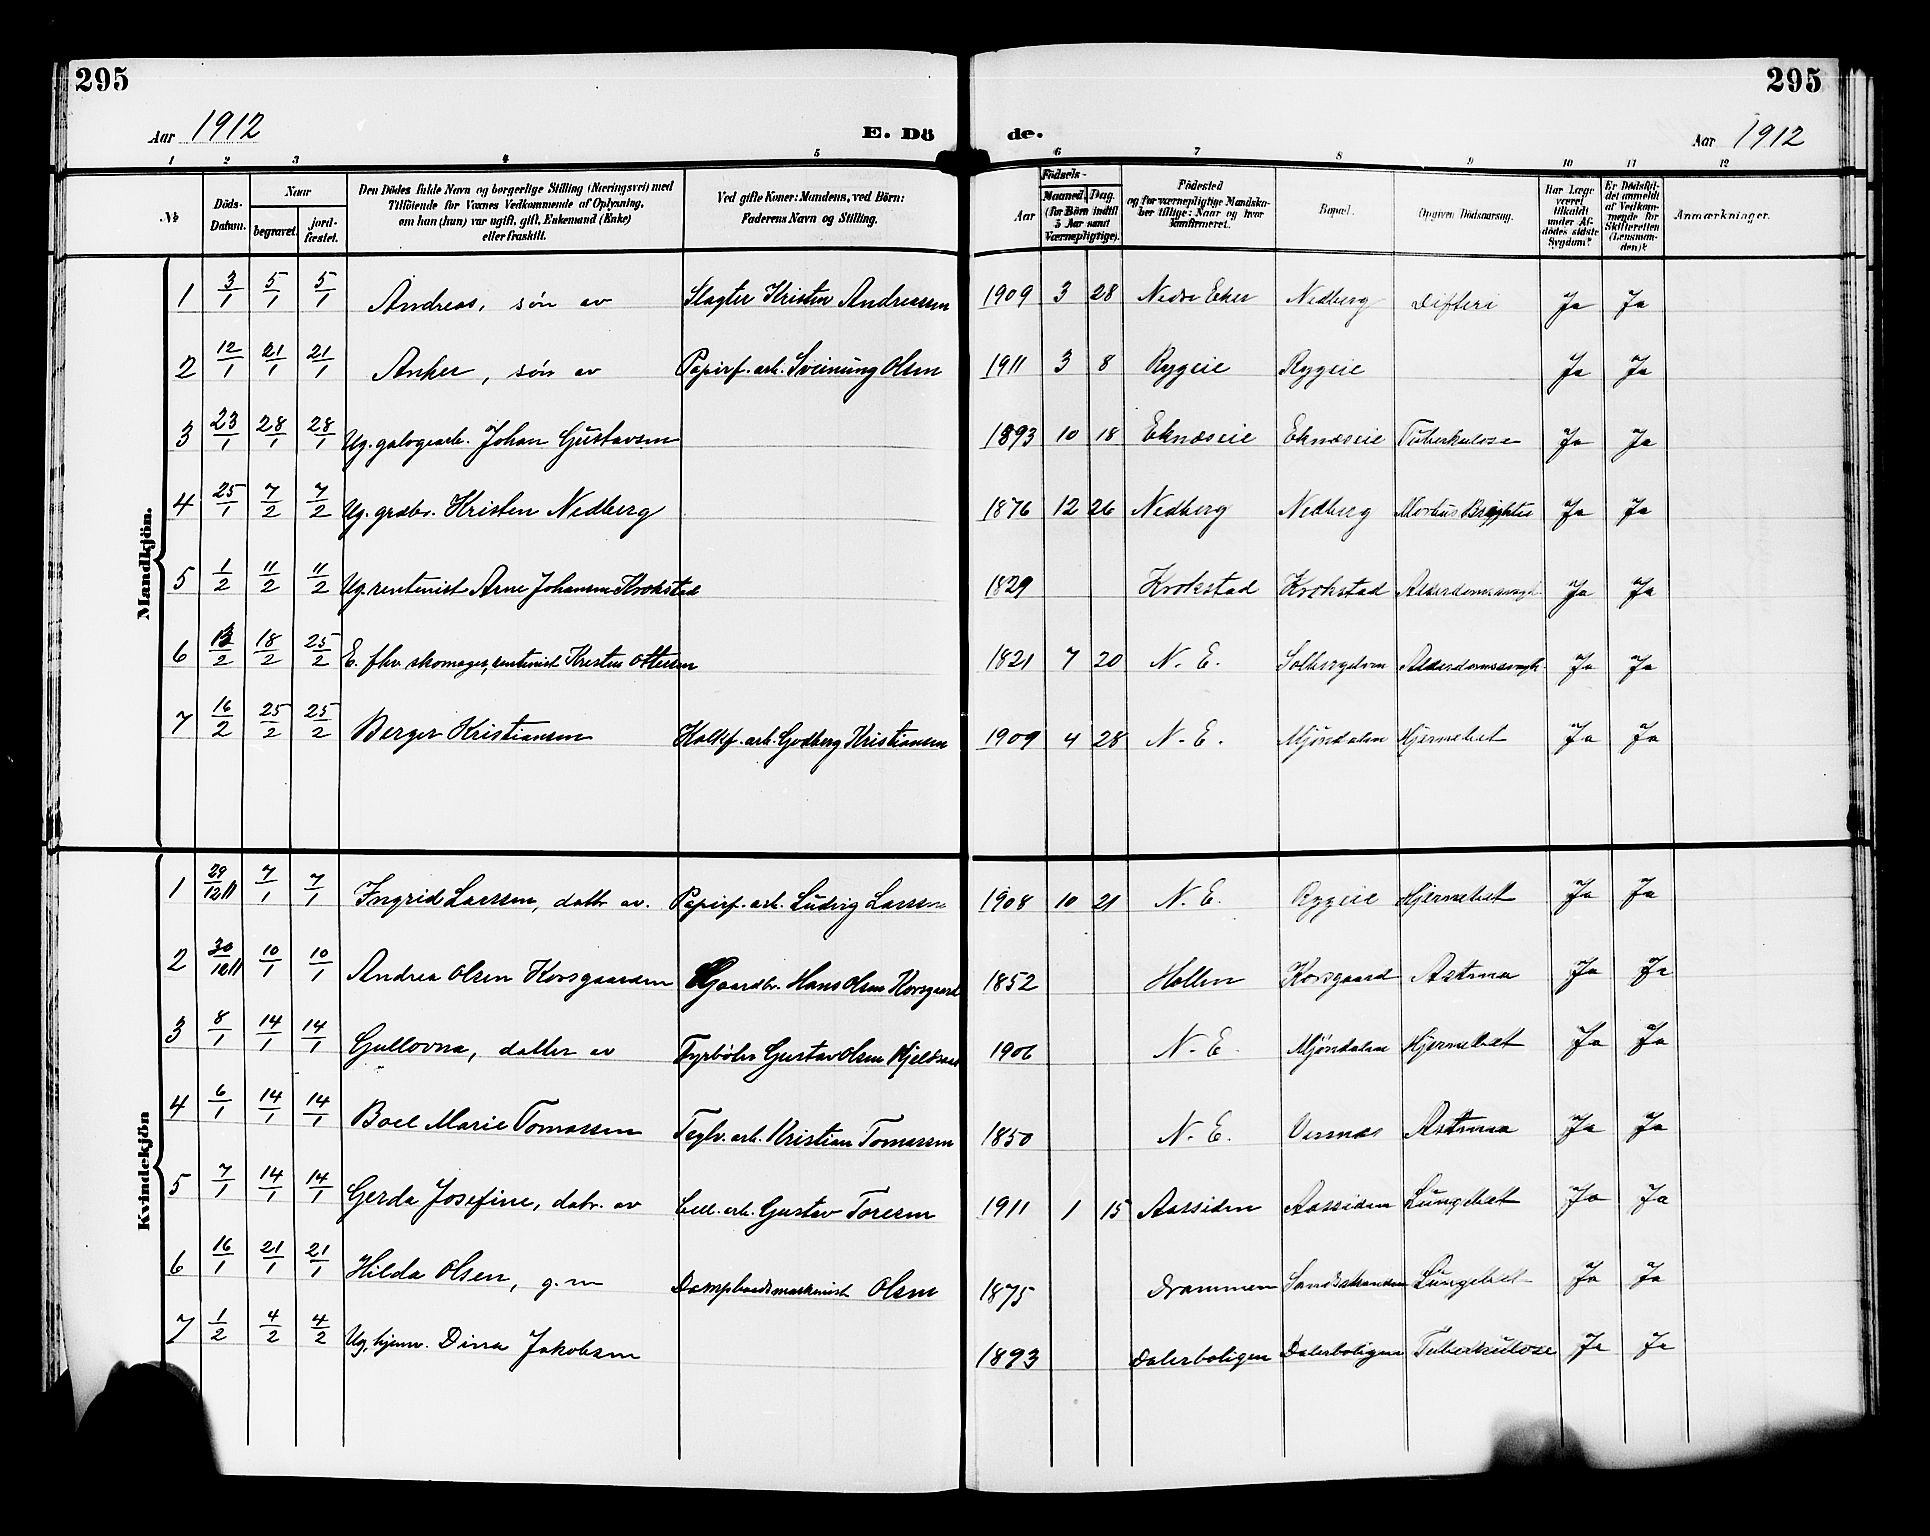 295
295
Aar 1912
E. Dö de.
Aar 1912
1 2 3 4 5 6 7 8 9 10 11 12
№
Döds-Datum.
Naar
begravet.
jord-fæstet.
Den Dödes fulde Navn og borgerlige Stilling (Næringsvei) med Tilföiende for Voxnes Vedkommende af Oplysning, om han (hun) var ugift, gift, Enkemand (Enke) eller fraskilt.
Ved gifte Koner: Mandens, ved Börn: Faderens Navn og Stilling.
Födsels-
Aar
Maaned. Dag.
(for Börn indtil 5 Aar samt Værnepligtige).
Födested og for værnepligtige Mandskaber tillige: Naar og hvor konfirmeret.
Bopæl.
Opgiven Dödsaarsag.
Har Læge været tilkaldt under Afdödes sidste Sygdom?
Er Dödsfaldet anmeldt af Vedkommende for Skifteretten (Lensmanden)?
Anmærkninger.
Mandkjön.
1 3/1 5/1 5/1 Andreas, søn av Slagter Kristen Andreassen 1909 3 28 Nedre Eker Nedberg Difteri Ja Ja
2 12/1 21/1 21/1 Anker, søn av Papirf. arb. Sveinung Olsen 1911 3 8 Rygeie Rygeie Ja Ja
3 23/1 28/1 28/1 Ug. galogearb. Johan Gustavsen 1893 10 18 Eknæseie Eknæseie Tuberkulose Ja Ja
4 25/1 7/2 7/2 Ug. grdbr. Kristen Nedberg 1876 12 26 Nedberg Nedberg Morbus Brightii Ja Ja
5 1/2 11/2 11/2 Ug. rentenist Arne Johansen Krokstad 1829 Krokstad Krokstad Alderdomssvagh. Ja Ja
6 /2 18/2 25/2 E. fhv. skomager, rentenist Kristen Ottersen 1821 7 20 N. E. Solbergelven Alderdomssvagh. Ja Ja
7 16/2 25/2 25/2 Berger Kristiansen Kalkf. arb. Godberg Kristiansen 1909 4 28 N. E. Mjøndalen Hjernebet Ja Ja
Kvindekjön
1 29/12 11 7/1 7/1 Ingrid Larssen, dattr av. Papirf. arb. Ludvig Larssen 1908 10 21 N. E. Rygeie Hjernebet Ja Ja
2 30/12 11 10/1 10/1 Andrea Olsen Korsgaarden Gaardbr. Hans Olsen Korsgaard 1852 Hollen Korsgaard Astma Ja Ja
3 8/1 14/1 14/1 Gullovna, datter av Fyrbøter Gustav Olsen 1906 N. E. Mjøndalen Hjernebet Ja Ja
4 6/1 14/1 14/1 Boel Marie Tomassen Teglv. arb. Kristian Tomassen 1850 N. E. Astma Ja Ja
5 7/1 14/1 14/1 Gerda Josefine, datr. av Cell. arb. Gustav Toresen 1911 1 15 Aassiden Aassiden Lungebet Ja Ja
6 16/1 21/1 21/1 Hilda Olsen, g. m Dampbaadsmaskinist Olsen 1875 Drammen Sandstranden Lungebet Ja Ja
7 1/2 4/2 4/2 Ug. hjemv. Dina Jakobsen 1893 Dalerboligen Dalerboligen Tuberkulose Ja Ja